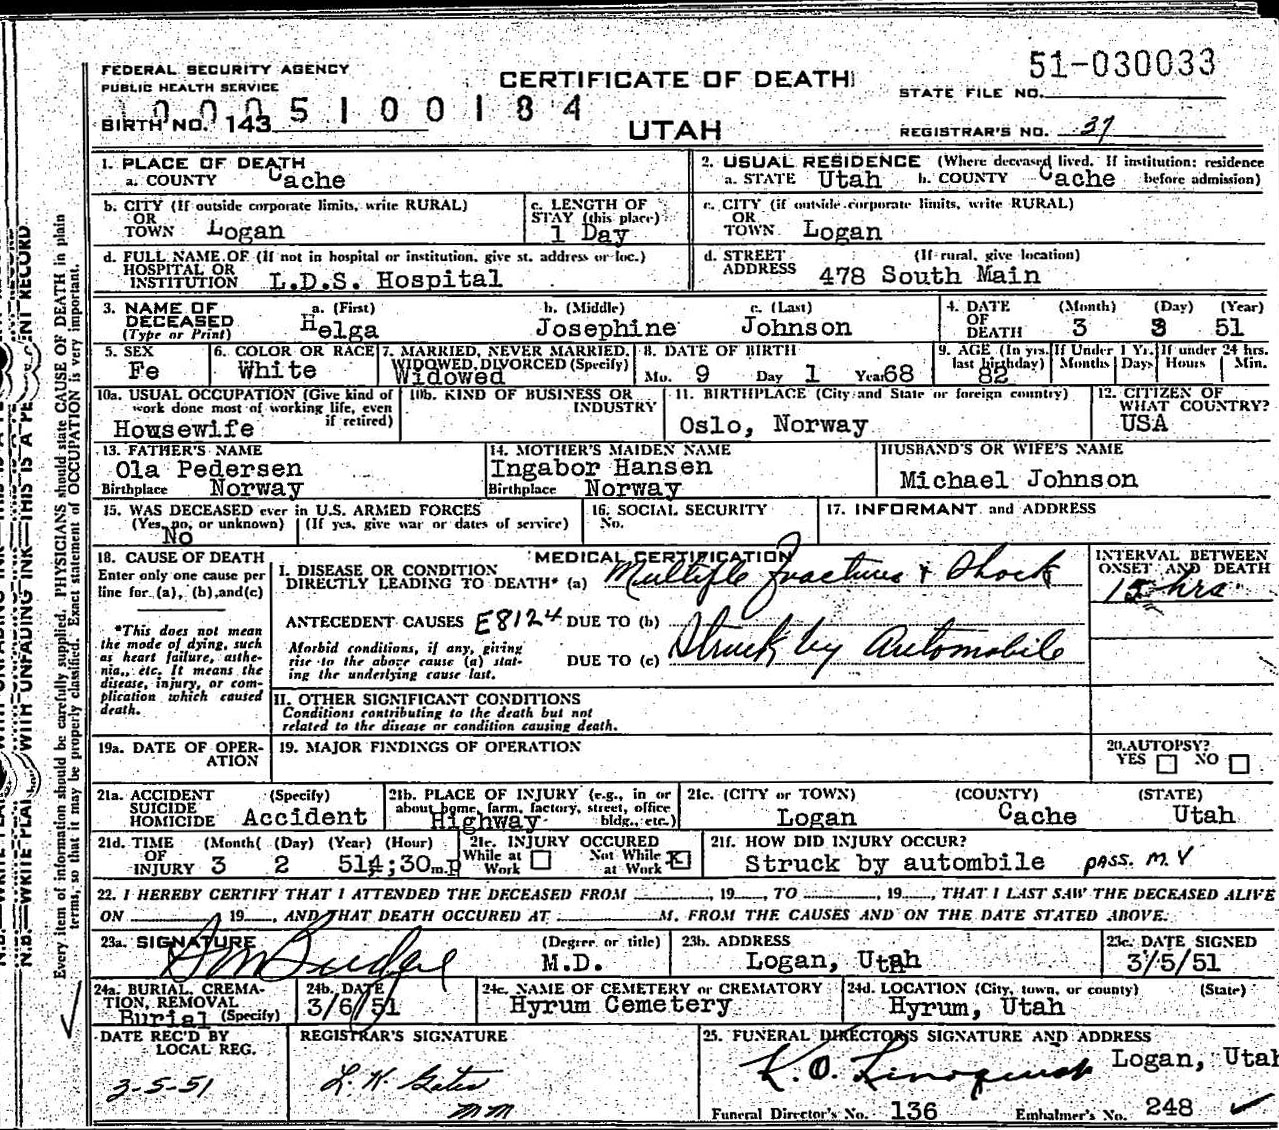 FEDERAL SECURITY AGENCY
PUBLIC HEALTH SERVICE
CERTIFICATE OF DEATH
51-030033
STATE FILE NO.
1 0 0 0 5 1 0 0 1 8 4
BIRTH NO. 143
UTAH
REGISTRAR'S NO. 37
1. PLACE OF DEATH
a. COUNTY Cache
2. USUAL RESIDENCE (Where deceased lived. If institution: residence
a. STATE Utah b. COUNTY Cache before admission)
b. CITY (If outside corporate limits, write RURAL)
OR
TOWN Logan
c. LENGTH OF
STAY (this place)
1 Day
c. CITY (if outside corporate limits, write RURAL)
OR
TOWN Logan
d. FULL NAME OF (If not in hospital or institution, give st. address or loc.)
HOSPITAL OR
INSTITUTION L.D.S. Hospital
d. STREET (If rural, give location)
ADDRESS 478 South Main
3. NAME OF DECEASED
(Type or Print)
a. (First) Helga
b. (Middle) Josephine
c. (Last) Johnson
4. DATE OF DEATH
(Month) (Day) (Year)
3 3 51
5. SEX
Fe
6. COLOR OR RACE
White
7. MARRIED, NEVER MARRIED,
WIDOWED, DIVORCED (Specify)
Widowed
8. DATE OF BIRTH
Mo. 9 Day 1 Year 68
9. AGE (In yrs. last birthday)
82
If Under 1 Yr.
Months Days
If under 24 hrs.
Hours Min.
10a. USUAL OCCUPATION (Give kind of
work done most of working life, even
if retired)
Housewife
10b. KIND OF BUSINESS OR
INDUSTRY
11. BIRTHPLACE (City and State or foreign country)
Oslo, Norway
12. CITIZEN OF
WHAT COUNTRY?
USA
13. FATHER'S NAME
Ola Pedersen
Birthplace Norway
14. MOTHER'S MAIDEN NAME
Ingabor Hansen
Birthplace Norway
HUSBAND'S OR WIFE'S NAME
Michael Johnson
15. WAS DECEASED ever in U.S. ARMED FORCES
(Yes, no, or unknown) (If yes, give war or dates of service)
No
16. SOCIAL SECURITY
No.
17. INFORMANT and ADDRESS
18. CAUSE OF DEATH
Enter only one cause per
line for (a), (b), and (c)
*This does not mean
the mode of dying, such
as heart failure, asthe-
nia, etc. It means the
disease, injury, or com-
plication which caused
death.
MEDICAL CERTIFICATION
I. DISEASE OR CONDITION
DIRECTLY LEADING TO DEATH* (a) Multiple fractures + Shock
ANTECEDENT CAUSES E8124 DUE TO (b)
Morbid conditions, if any, giving
rise to the above cause (a) stat-
ing the underlying cause last.
DUE TO (c) Struck by Automobile
INTERVAL BETWEEN
ONSET AND DEATH
15 hrs
II. OTHER SIGNIFICANT CONDITIONS
Conditions contributing to the death but not
related to the disease or condition causing death.
19a. DATE OF OPER-
ATION
19. MAJOR FINDINGS OF OPERATION
20. AUTOPSY?
YES NO
21a. ACCIDENT (Specify)
SUICIDE
HOMICIDE Accident
21b. PLACE OF INJURY (e.g., in or
about home, farm, factory, street, office
bldg., etc.)
Highway
21c. (CITY or TOWN) (COUNTY) (STATE)
Logan Cache Utah
21d. TIME (Month) (Day) (Year) (Hour)
OF
INJURY 3 2 51 4;30 m.p
21e. INJURY OCCURED
While at Work Not While at Work X
21f. HOW DID INJURY OCCUR?
Struck by autombile pass. M.V
22. I HEREBY CERTIFY THAT I ATTENDED THE DECEASED FROM , 19 , TO , 19 , THAT I LAST SAW THE DECEASED ALIVE
ON , 19 , AND THAT DEATH OCCURED AT M. FROM THE CAUSES AND ON THE DATE STATED ABOVE.
23a. SIGNATURE (Degree or title)
Budge M.D.
23b. ADDRESS
Logan, Utah
23c. DATE SIGNED
3/5/51
24a. BURIAL, CREMA-
TION, REMOVAL
Burial (Specify)
24b. DATE
3/6/51
24c. NAME OF CEMETERY or CREMATORY
Hyrum Cemetery
24d. LOCATION (City, town, or county) (State)
Hyrum, Utah
DATE REC'D BY
LOCAL REG.
3-5-51
REGISTRAR'S SIGNATURE
mm
25. FUNERAL DIRECTOR'S SIGNATURE AND ADDRESS
Logan, Utah
Funeral Director's No. 136 Embalmer's No. 248
N.B.—WRITE PLAINLY WITH UNFADING INK—THIS IS A PERMANENT RECORD.
Every item of information should be carefully supplied. PHYSICIANS should state CAUSE OF DEATH in plain
terms, so that it may be properly classified. Exact statement of OCCUPATION is very important.